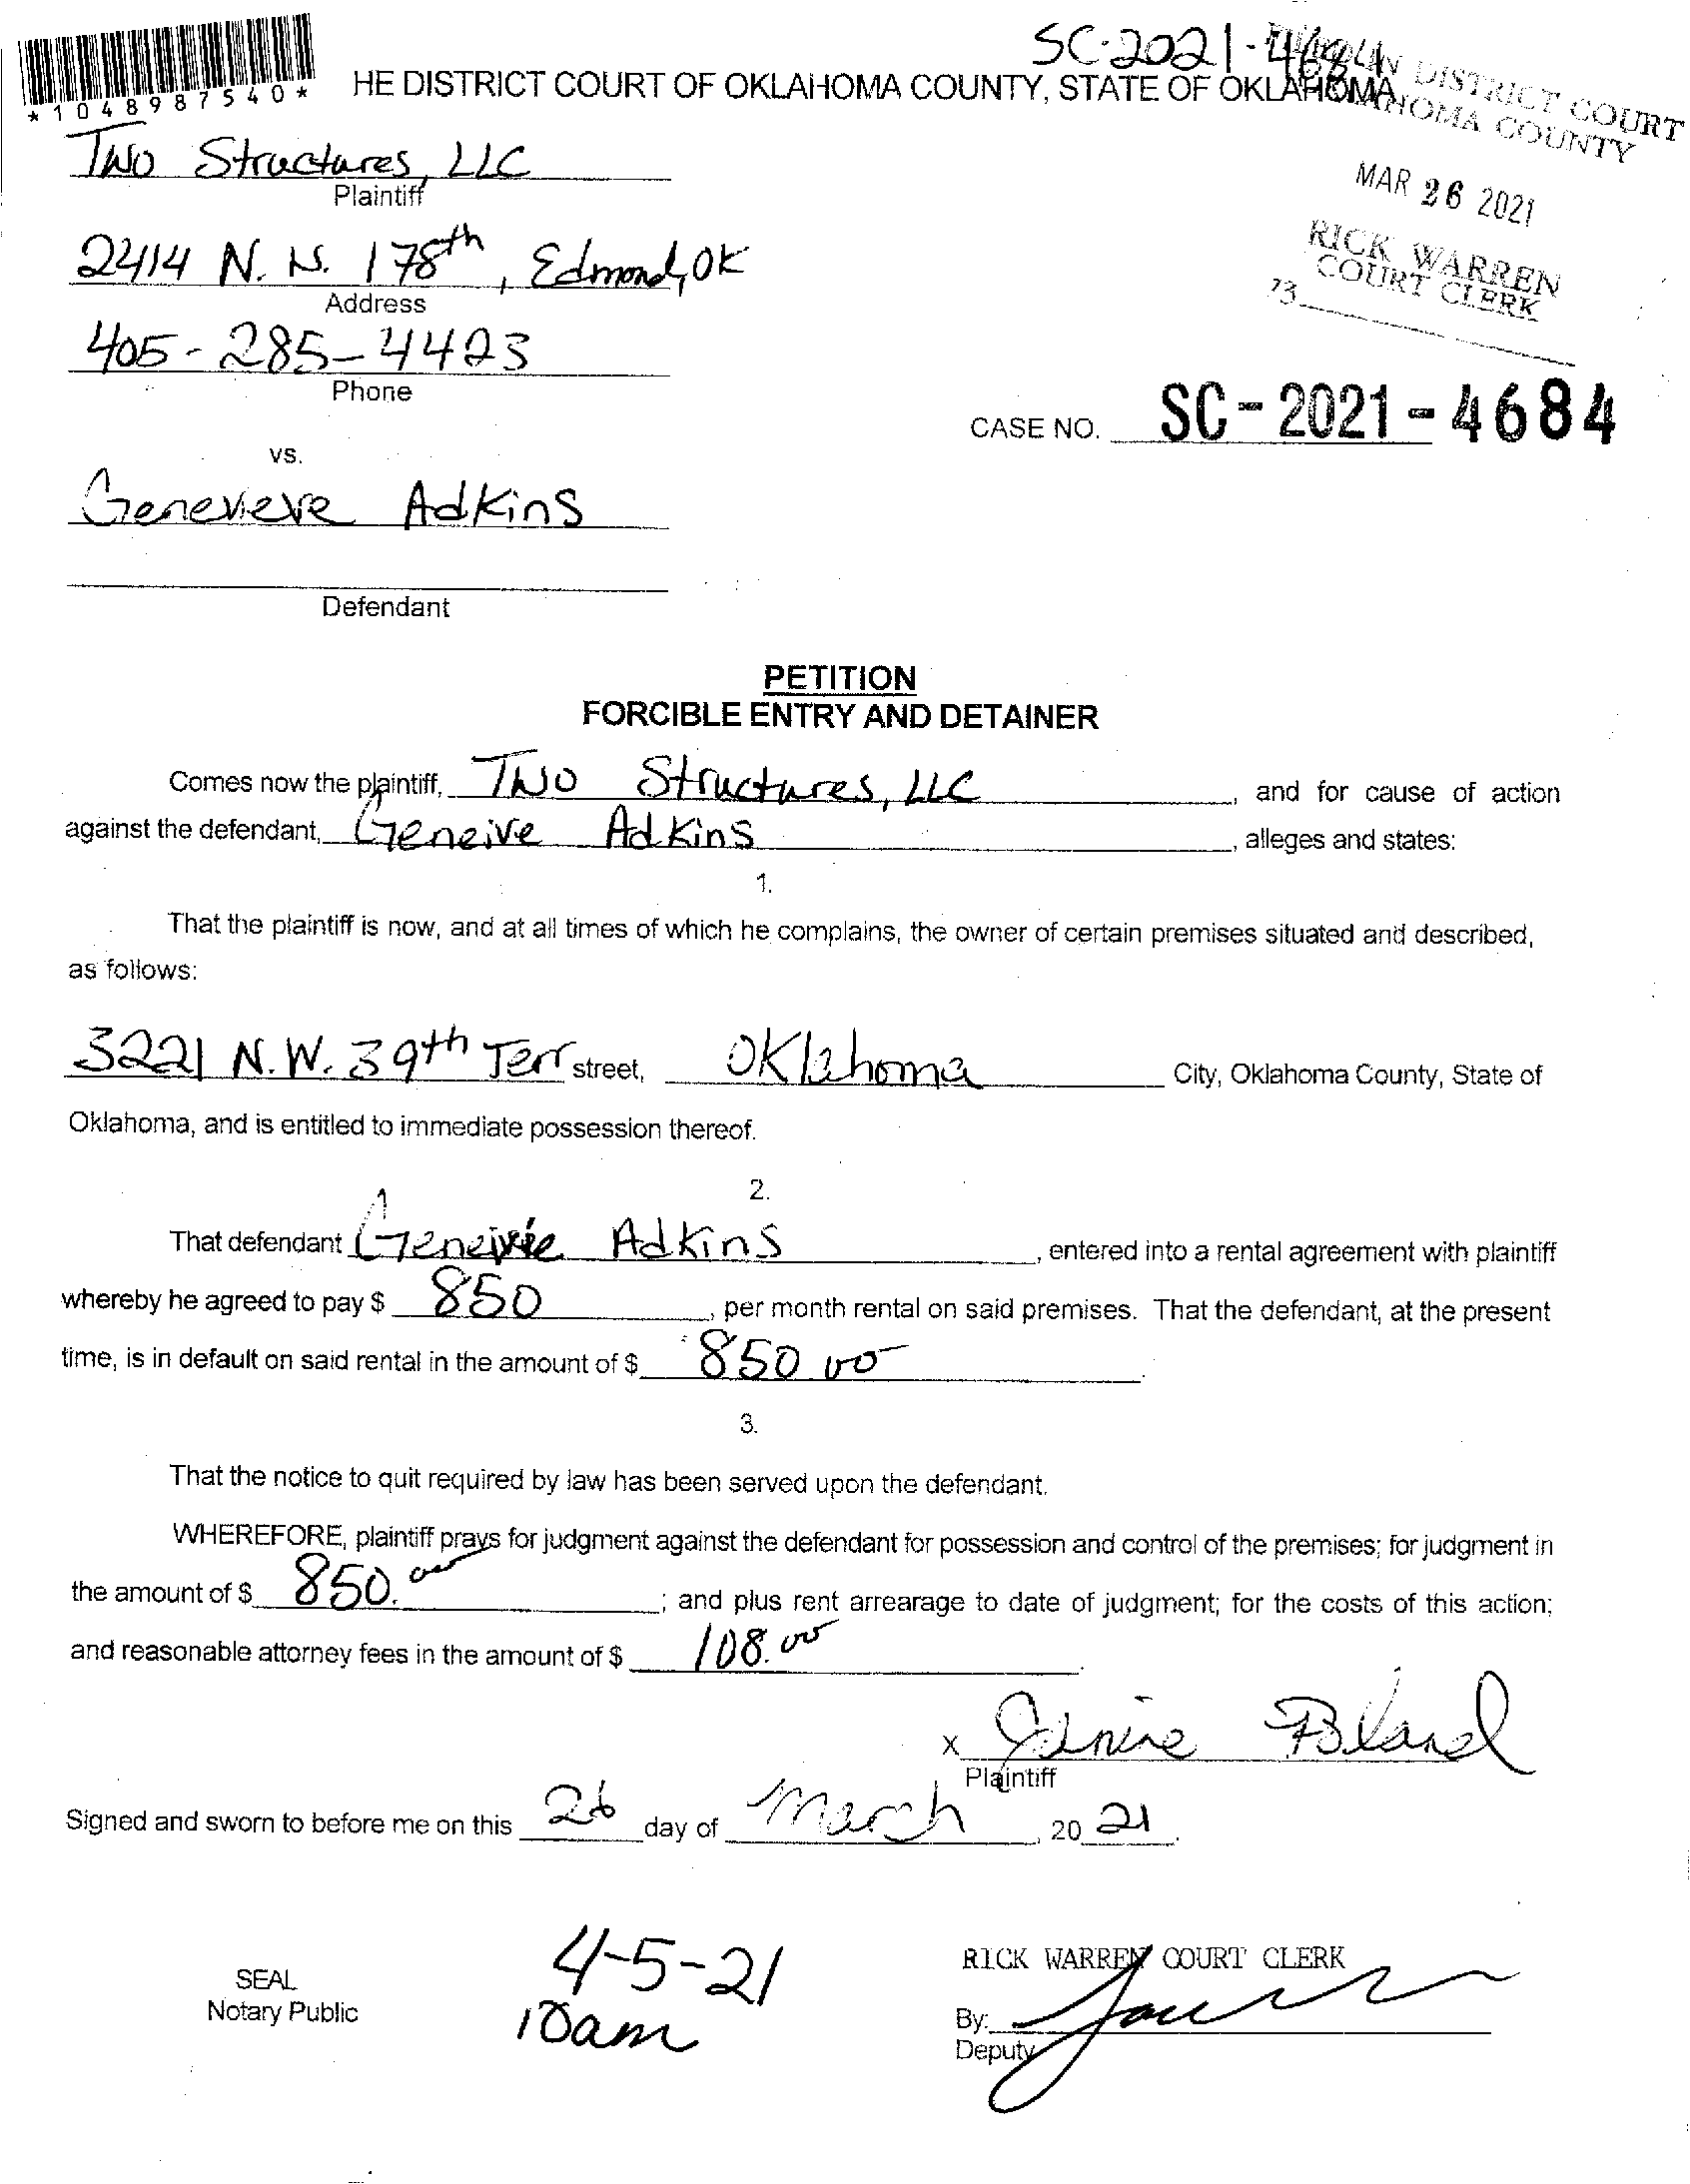 SC-2021-4684
FILED IN DISTRICT COURT
OKLAHOMA COUNTY
*1048987540*
HE DISTRICT COURT OF OKLAHOMA COUNTY, STATE OF OKLAHOMA
MAR 26 2021
RICK WARREN
COURT CLERK
73
Two Structures, LLC
Plaintiff
2414 N.W. 178th, Edmond, OK
Address
405-285-4423
Phone
CASE NO. SC-2021-4684
vs.
Genevieve Adkins
Defendant
PETITION
FORCIBLE ENTRY AND DETAINER
Comes now the plaintiff, Two Structures, LLC, and for cause of action
against the defendant, Geneive Adkins, alleges and states:
1.
That the plaintiff is now, and at all times of which he complains, the owner of certain premises situated and described,
as follows:
3221 N.W. 39th Terr street, Oklahoma City, Oklahoma County, State of
Oklahoma, and is entitled to immediate possession thereof.
2.
That defendant Adkins, entered into a rental agreement with plaintiff
whereby he agreed to pay $ 850, per month rental on said premises. That the defendant, at the present
time, is in default on said rental in the amount of $ 850.00.
3.
That the notice to quit required by law has been served upon the defendant.
WHEREFORE, plaintiff prays for judgment against the defendant for possession and control of the premises; for judgment in
the amount of $ 850.00; and plus rent arrearage to date of judgment; for the costs of this action;
and reasonable attorney fees in the amount of $ 108.00.
X Janine Bland
Plaintiff
Signed and sworn to before me on this 26 day of March, 20 21.
4-5-21
10am
SEAL
Notary Public
RICK WARREN COURT CLERK
By:
Deputy